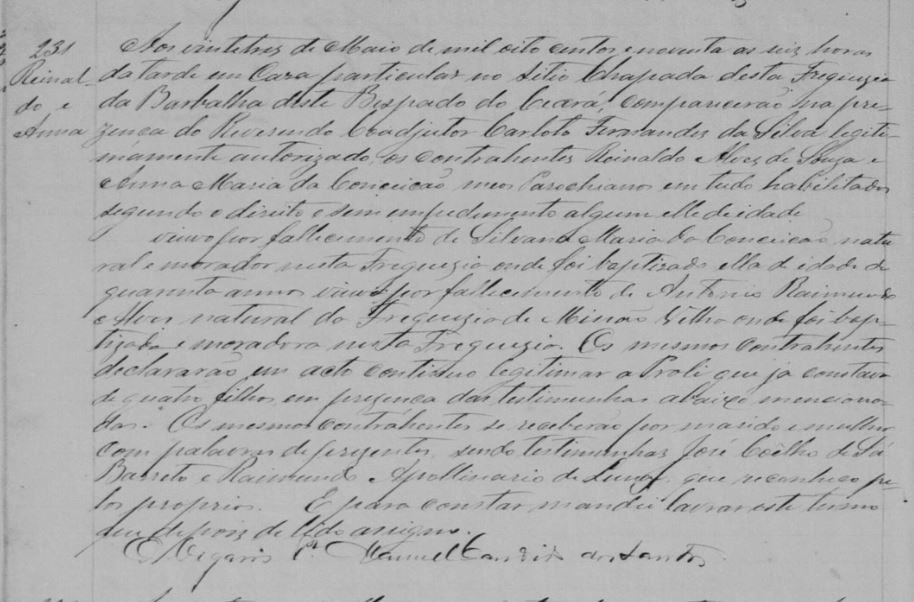 231
Reinal-
do e
Anna
Aos vinte tres de Maio de mil oito centos e noventa as seis horas
da tarde em Caza particular no sitio Chapada desta Freguezia
da Barbalha deste Bispado do Ceará, comparecerão na pre-
zença do Reverendo Coadjutor Carloto Fernandes da Silva legiti-
mamente autorizado, os contrahentes Reinaldo Alves de Souza e
Anna Maria da Conceição, meos Parochianos em tudo habilitados
segundo o direito e sem empedimento algum elle de idade
viuvo por fallecimento de Silvana Maria da Conceição, natu
ral e morador nesta Freguezia onde foi baptizado ella de idade de
quarenta annos viuva por fallecimento de Antonio Raimundo
Alves natural da Freguezia de Missão Velha onde foi bap-
tizada e moradora nesta Freguezia. Os mesmos contrahentes
declararão em acto continuo legitimar a Prole que ja constava
de quatro filhos, em prezença das testimunhas abaixo menciona-
das. Os mesmos contrahentes se receberão por marido e mulher
com palavras de prezentes, sendo testimunhas José Coêlho de Sá
Barreto e Raimundo Apollinario de Luna, que reconheço pe-
los proprios. E para constar mandei lavrar este termo
que depois de lido assigno.
O Vigario Pe. Manuel Candido dos Santos.